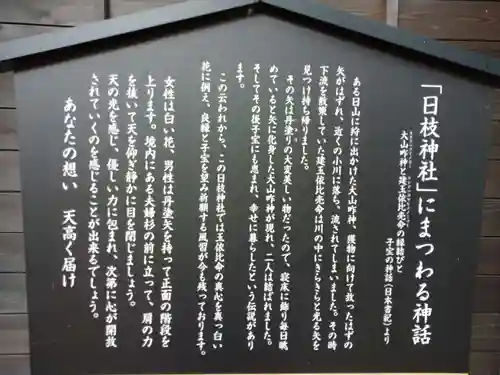 「日枝神社」にまつわる神話
大山咋神と建玉依比売命の縁結びと
子宝の神話（日本書紀）より
ある日山に狩に出かけた大山咋神、獲物に向けて放ったはずの
矢がはずれ、近くの小川に落ち、流されてしまいました。その時
下流を散策していた建玉依比売命は川の中にきらきらと光る矢を
見つけ持ち帰りました。
その矢は丹塗りの大変美しい物だったので、寝床に飾り毎日眺
めていると矢に化身した大山咋神が現れ、二人は結ばれました。
そしてその後子宝にも恵まれ、幸せに暮らしたという伝説があり
ます。
この云われから、この日枝神社では玉依比命の真心を真っ白い
花に例え、良縁と子宝を望み祈願する風習が今も残っております。
女性は白い花、男性は丹塗矢を持って正面の階段を
上ります。境内にある夫婦杉の前に立って、肩の力
を抜いて天を仰ぎ静かに目を閉じましょう。
天の光を感じ、優しい力に包まれ、次第に心が開放
されていくのを感じることが出来るでしょう。
あなたの想い　天高く届け